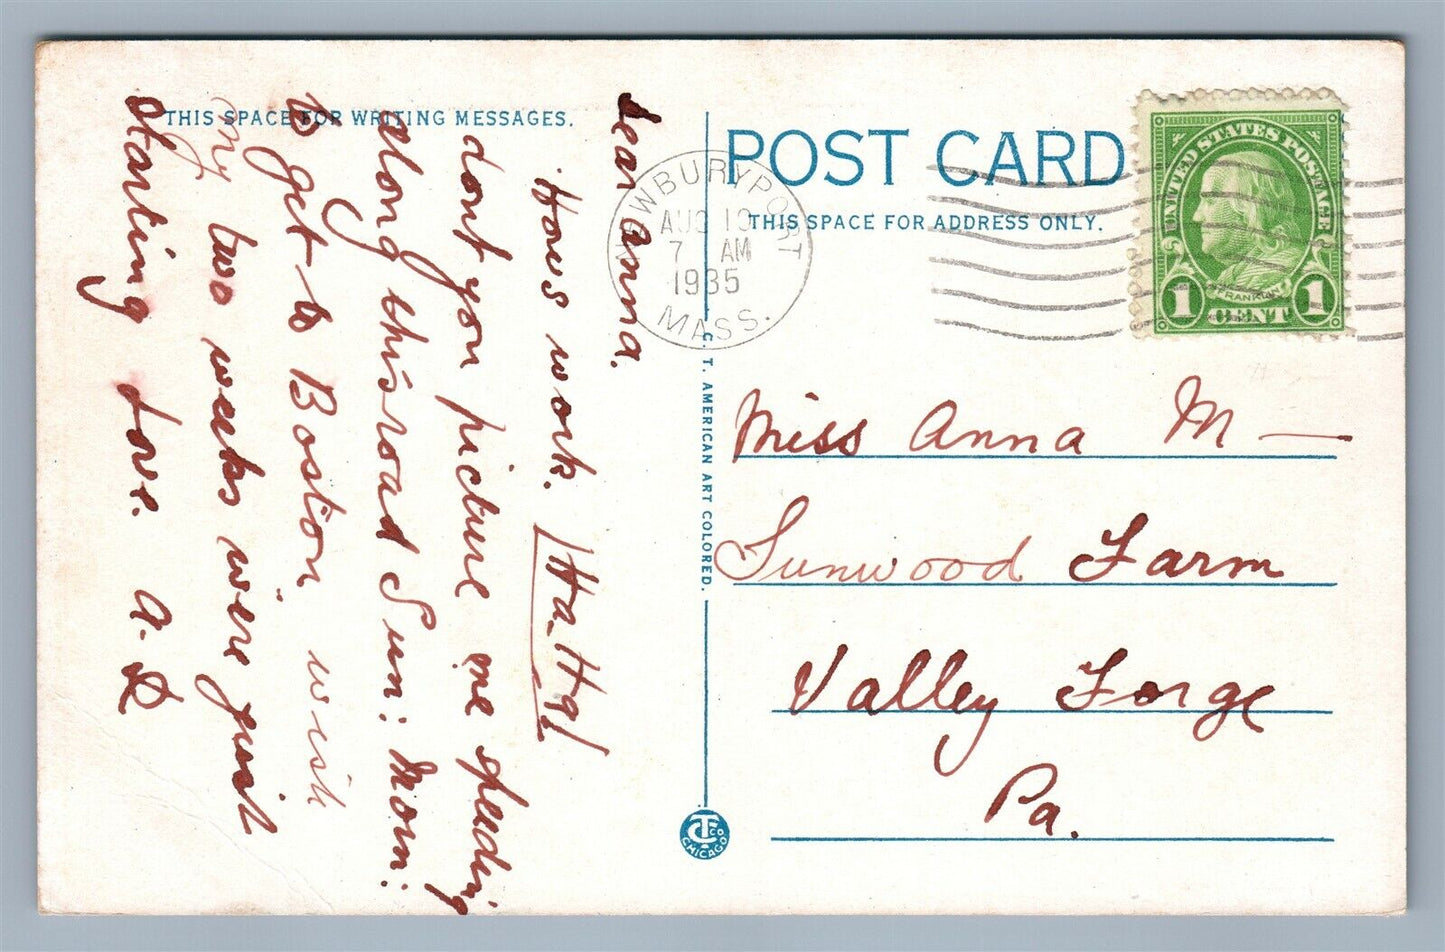 THIS SPACE FOR WRITING MESSAGES.
Dear Anna.
Hows work. Ha-Ha!
dont you picture me speeding
along this road Sun: Morn:
to get to Boston. wish
my two weeks were just
starting Love. A. R
POST CARD
THIS SPACE FOR ADDRESS ONLY.
NEWBURYPORT
AUG 10
7 AM
1935
MASS.
UNITED STATES POSTAGE
FRANKLIN
1 CENT 1
C. T. AMERICAN ART COLORED.
Miss Anna M —
Sunwood Farm
Valley Forge
Pa.
CT CO
CHICAGO